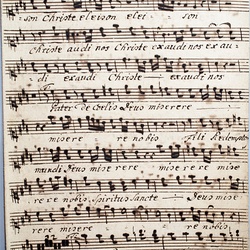 son Christe eleison elei - son
Christe audi nos Christe exaudi nos exau -
di exaudi Christe exaudi nos
Pater de coelis Deus miserere
misere re nobis Fili Redemptor
mundi Deus mise rere misere
re re nobis Spiritus Sancte Deus mise
rere misere re nobis